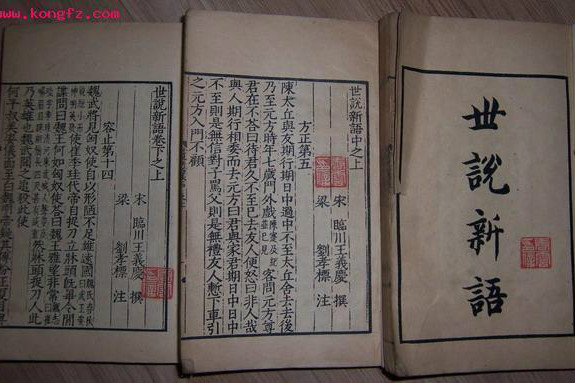 www.kongfz.com
世說新語
世說新語中之上
方正第五
宋 臨川王義慶 撰
梁 劉孝標 注
陳太丘與友期行期日中過中不至太丘舍去去後
乃至元方時年七歲門外戲陳寔及紀並已見客問元方尊
君在不荅曰待君久不至已去友人便怒曰非人哉
與人期行相委而去元方曰君與家君期日中日中
不至則是無信對子罵父則是無禮友人慙下車引
之元方入門不顧
世說新語卷下之上
容止第十四
宋 臨川王義慶 撰
梁 劉孝標 注
魏武將見匈奴使自以形陋不足雄遠國魏氏春秋曰武王姿
貌短小而神明英發使崔季珪代帝自捉刀立牀頭旣畢令間
諜問曰魏王何如匈奴使荅曰魏王雅望非常然牀頭捉刀人此
乃英雄也魏武聞之追殺此使
何平叔美姿儀面至白魏